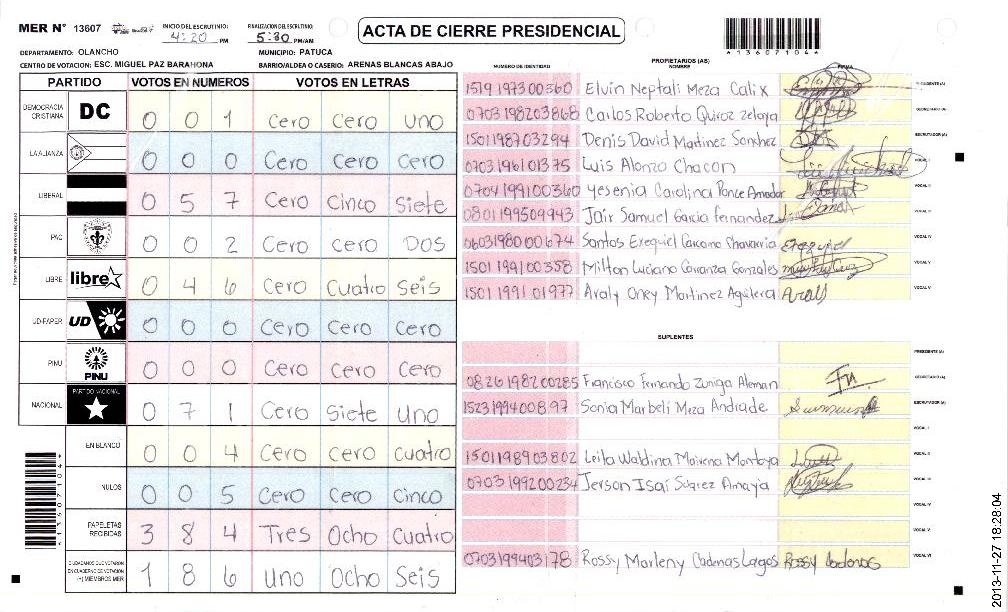 MER N° 13607 INICIO DEL ESCRUTINIO: 4:20 PM FINALIZACION DEL ESCRUTINIO: 5:30 PM/AM
ACTA DE CIERRE PRESIDENCIAL
*13607104*
DEPARTAMENTO: OLANCHO MUNICIPIO: PATUCA
CENTRO DE VOTACION: ESC. MIGUEL PAZ BARAHONA BARRIO/ALDEA O CASERIO: ARENAS BLANCAS ABAJO
PARTIDO VOTOS EN NUMEROS VOTOS EN LETRAS
DEMOCRACIA CRISTIANA DC 0 0 1 Cero Cero uno
LA ALIANZA 0 0 0 Cero Cero Cero
LIBERAL 0 5 7 Cero Cinco Siete
PAC 0 0 2 Cero cero DOS
LIBRE libre 0 4 6 Cero Cuatro Seis
UD-FAPER UD 0 0 0 Cero Cero Cero
PINU PINU 0 0 0 Cero Cero Cero
NACIONAL PARTIDO NACIONAL 0 7 1 Cero Siete uno
EN BLANCO 0 0 4 Cero Cero cuatro
NULOS 0 0 5 Cero Cero Cinco
PAPELETAS RECIBIDAS 3 8 4 Tres Ocho Cuatro
CIUDADANOS QUE VOTARON EN CUADERNO DE VOTACION (+) MIEMBROS MER 1 8 6 uno Ocho Seis
*13607104*
PROPIETARIOS (AS)
NUMERO DE IDENTIDAD NOMBRE FIRMA
1519197300360 Elvin Neptali Meza Calix PRESIDENTE (A)
0703198203868 Carlos Roberto Quiroz Zelaya SECRETARIO (A)
1501198703294 Denis David Martinez Sanchez ESCRUTADOR (A)
0703196101375 Luis Alonzo Chacon VOCAL I
0704199100360 Yesenia Carolina Ponce Amador VOCAL II
0801199509943 Jair Samuel Garcia fernandez VOCAL III
0603198000674 Santos Exequiel Carcamo Chavarria VOCAL IV
1501199100358 Milton Luciano Carranza Gonzales VOCAL V
1501199101977 Araly Oney Martinez Aguilera VOCAL V
SUPLENTES
PRESIDENTE (A)
0826198200285 Francisco Fernando Zuniga Aleman SECRETARIO (A)
1523199400897 Sonia Marbeli Meza Andrade ESCRUTADOR (A)
VOCAL I
1501198903802 Leila Waldina Mairena Montoya VOCAL II
0703199200234 Jerson Isaí Suarez Amaya VOCAL III
VOCAL IV
VOCAL V
0703199403178 Rossy Marleny Cadenas Lagos Rossy Cadenas VOCAL VI
2013-11-27 18:28:04